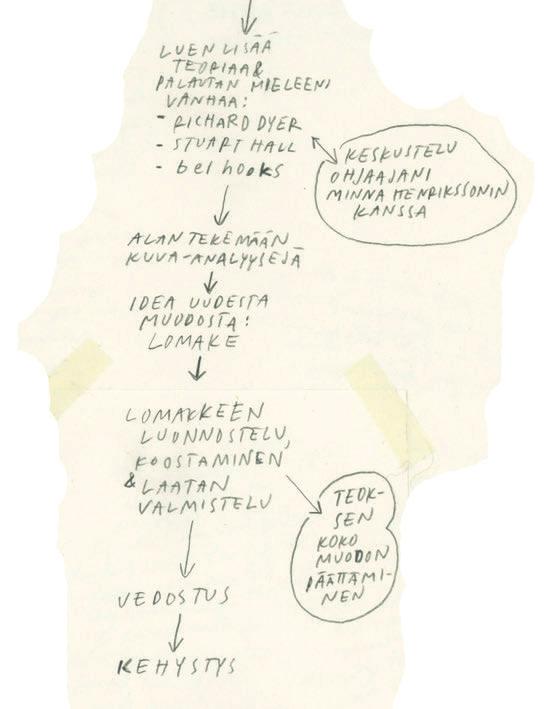 LUEN LISÄÄ
TEORIAA &
PALAUTAN MIELEENI
VANHAA:
- RICHARD DYER
- STUART HALL
- bell hooks
KESKUSTELU
OHJAAJANI
MINNA HENRIKSSONIN
KANSSA
ALAN TEKEMÄÄN
KUVA-ANALYYSEJÄ
IDEA UUDESTA
MUODOSTA:
LOMAKE
LOMAKKEEN
LUONNOSTELU,
KOOSTAMINEN
& LAATAN
VALMISTELU
TEOK-
SEN
KOKO
MUODON
PÄÄTTÄMI-
NEN
VEDOSTUS
KEHYSTYS